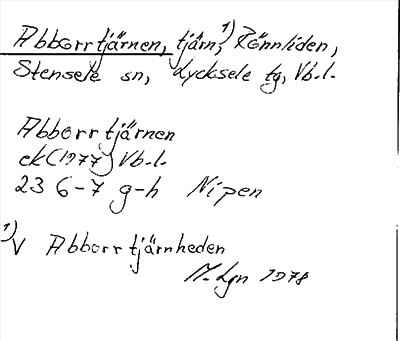 Abborrtjärnen, tjärn, 1) Rönnliden,
Stensele sn, Lycksele tg, Vb.l.
Abborrtjärnen
ek (1977) Vb.l.
23 G-7 g-h Nipen
1) V Abborrtjärnheden
M. Lgn 1978